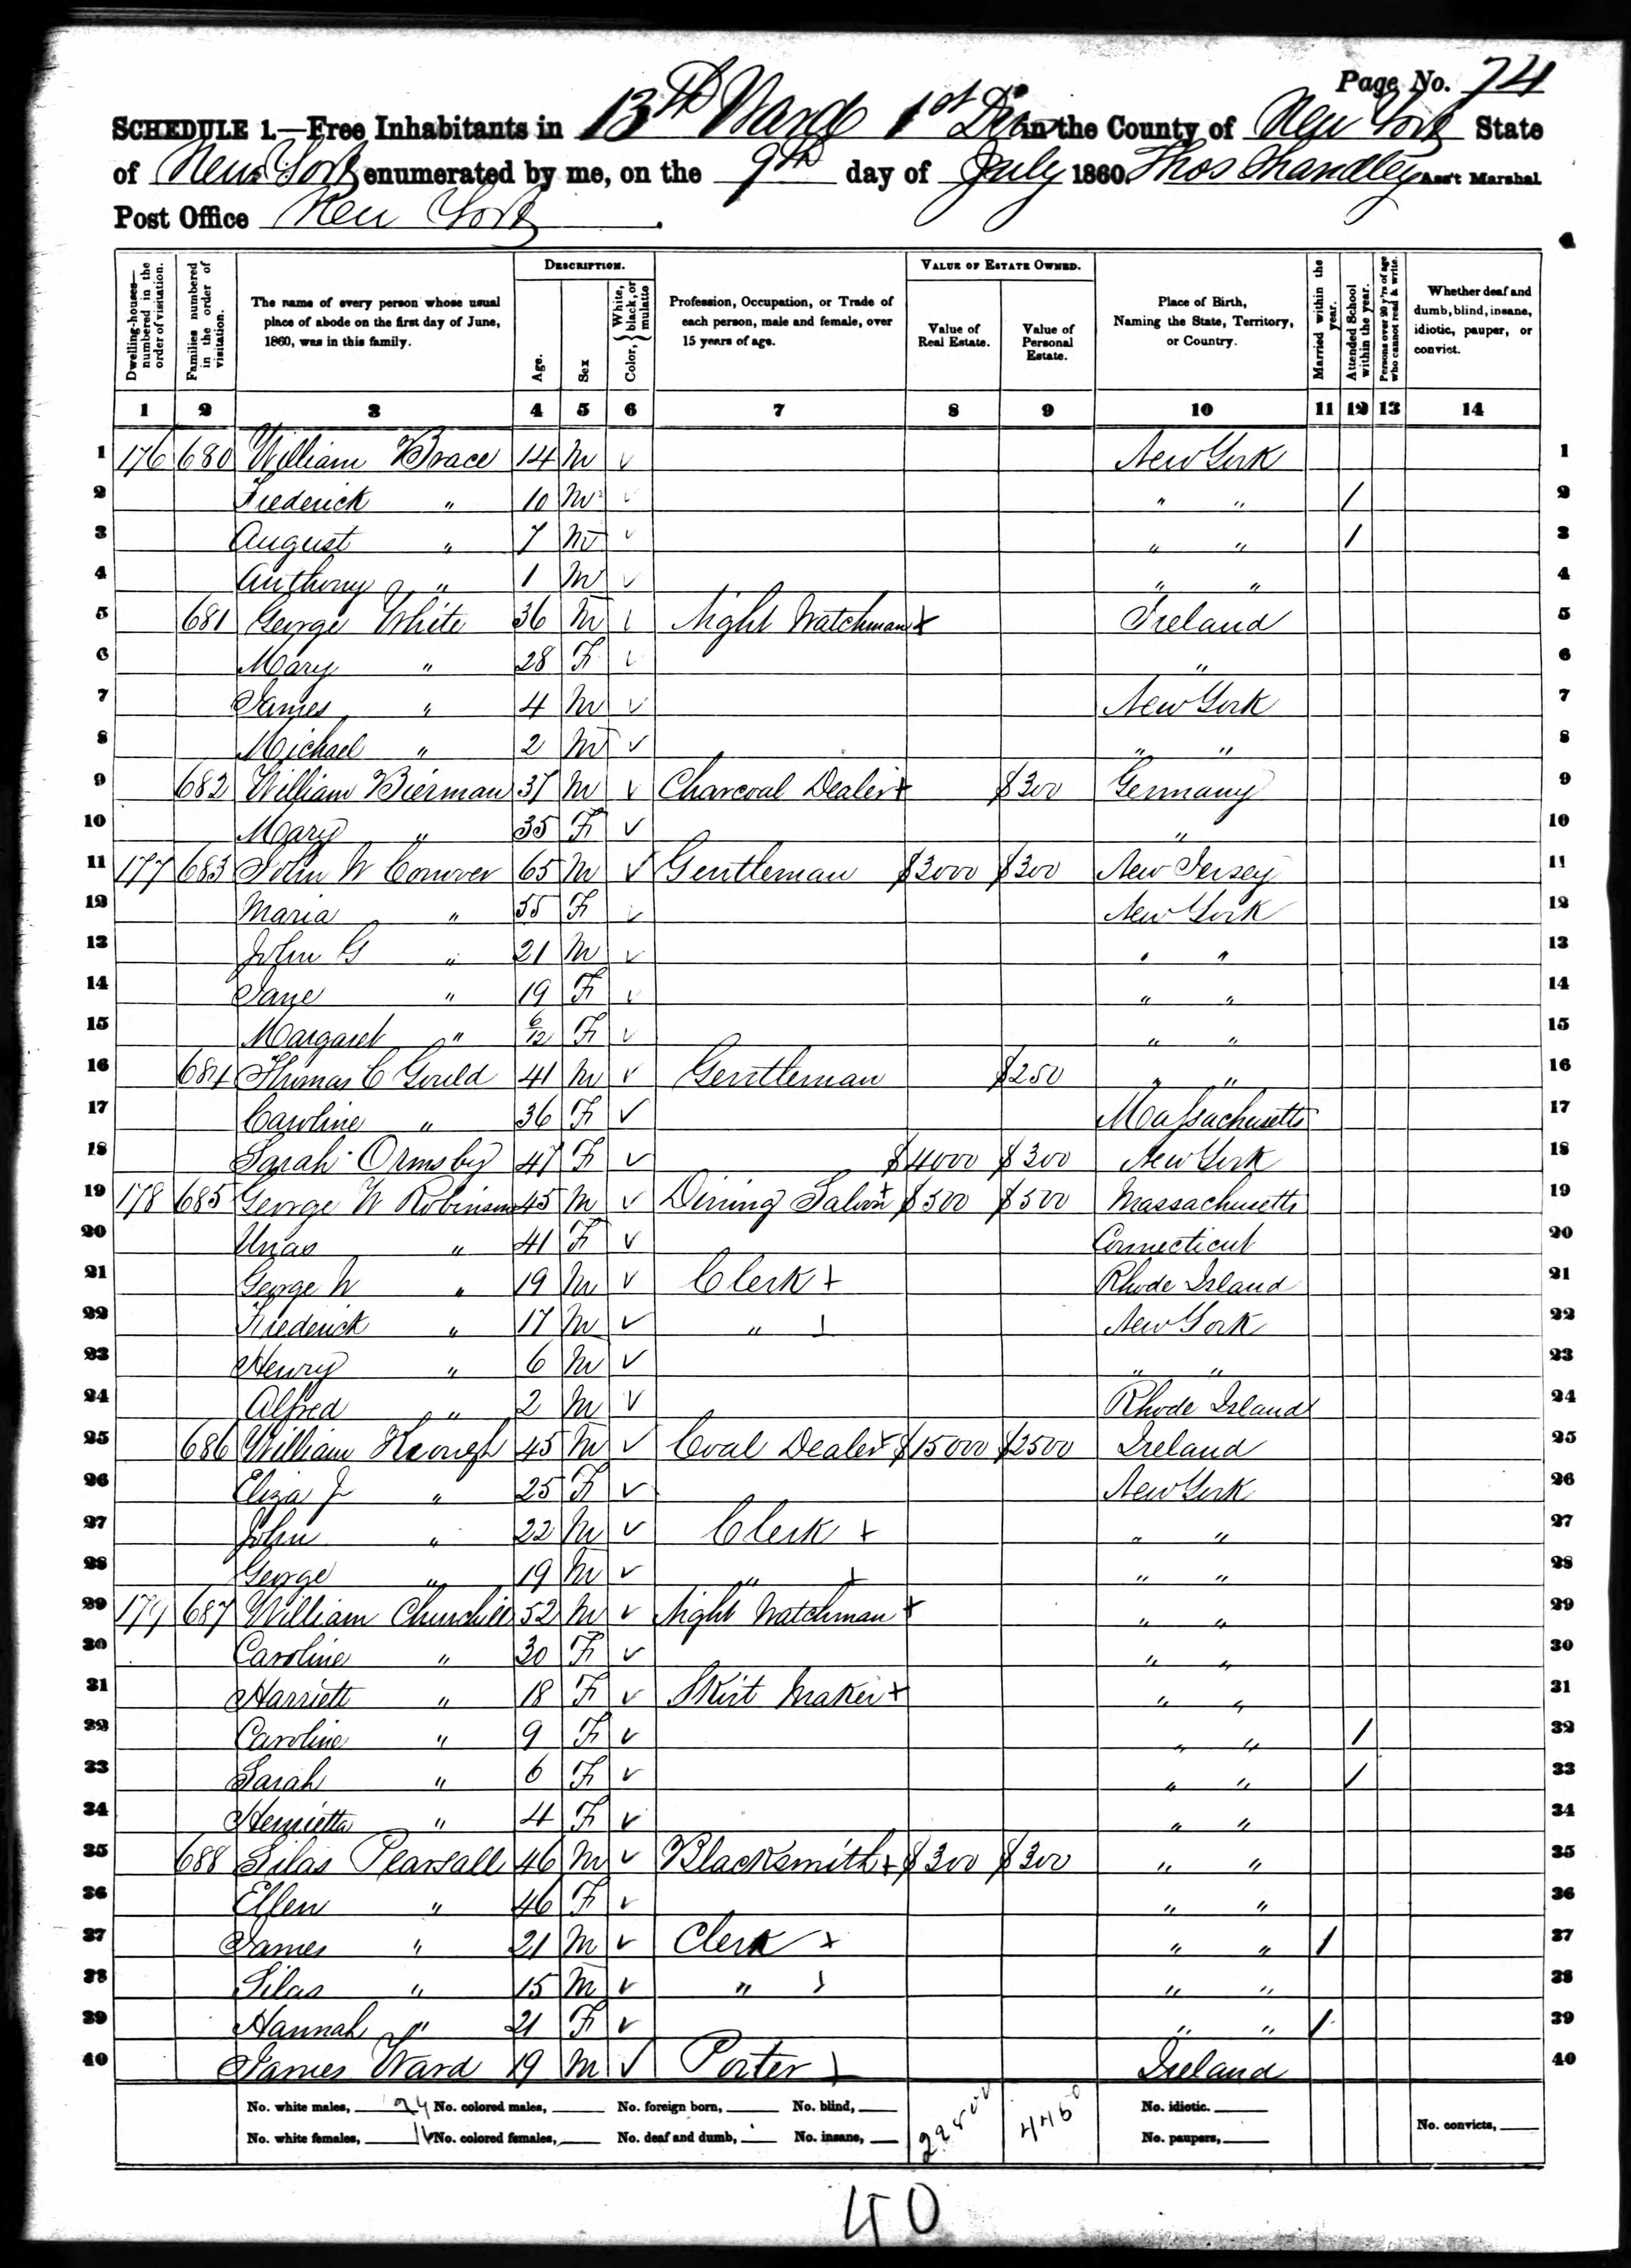 Page No. 74
SCHEDULE 1.—Free Inhabitants in 13th Ward 1st Div in the County of New York State
of New York enumerated by me, on the 9th day of July 1860. Thos Shandley Ass't Marshal
Post Office New York.
Dwelling-houses—numbered in the order of visitation. Families numbered in the order of visitation. The name of every person whose usual place of abode on the first day of June, 1860, was in this family. DESCRIPTION. Age. Sex Color, { White, black, or mulatto Profession, Occupation, or Trade of each person, male and female, over 15 years of age. VALUE OF ESTATE OWNED. Value of Real Estate. Value of Personal Estate. Place of Birth, Naming the State, Territory, or Country. Married within the year. Attended School within the year. Persons over 20 y'rs of age who cannot read & write. Whether deaf and dumb, blind, insane, idiotic, pauper, or convict.
1 2 3 4 5 6 7 8 9 10 11 12 13 14
1 176 680 William Brace 14 M ✓ New York 1
2 Frederick " 10 M ✓ " " / 2
3 August " 7 M ✓ " " / 3
4 Anthony " 1 M ✓ " " 4
5 681 George White 36 M ✓ Night Watchman + Ireland 5
6 Mary " 28 F ✓ " 6
7 James " 4 M ✓ New York 7
8 Michael " 2 M ✓ " " 8
9 682 William Bierman 37 M ✓ Charcoal Dealer + $300 Germany 9
10 Mary " 35 F ✓ " 10
11 177 683 John W Conover 65 M ✓ Gentleman $3000 $300 New Jersey 11
12 Maria " 55 F ✓ New York 12
13 John G " 21 M ✓ " " 13
14 Jane " 19 F ✓ " " 14
15 Margaret " 6/12 F ✓ " " 15
16 684 Thomas C Gould 41 M ✓ Gentleman $250 " " 16
17 Caroline " 36 F ✓ Massachusetts 17
18 Sarah Ormsby 47 F ✓ $4000 $300 New York 18
19 178 685 George W Robinson 45 M ✓ Dining Saloon + $500 $500 Massachusetts 19
20 " 41 F ✓ Connecticut 20
21 George W " 19 M ✓ Clerk + Rhode Island 21
22 Frederick " 17 M ✓ " + New York 22
23 Henry " 6 M ✓ " " 23
24 Alfred " 2 M ✓ Rhode Island 24
25 686 William Keough 45 M ✓ Coal Dealer + $15000 $2500 Ireland 25
26 Eliza J " 25 F ✓ New York 26
27 John " 22 M ✓ Clerk + " " 27
28 George " 19 M ✓ " + " " 28
29 179 687 William Churchill 52 M ✓ Night Watchman + " " 29
30 Caroline " 30 F ✓ " " 30
31 Harriett " 18 F ✓ Skirt Maker + " " 31
32 Caroline " 9 F ✓ " " / 32
33 Sarah " 6 F ✓ " " / 33
34 Henrietta " 4 F ✓ " " 34
35 688 Silas Pearsall 46 M ✓ Blacksmith + $300 $300 " " 35
36 Ellen " 46 F ✓ " " 36
37 James " 21 M ✓ Clerk + " " / 37
38 Silas " 15 M ✓ " + " " 38
39 Hannah " 21 F ✓ " " / 39
40 James Ward 19 M ✓ Porter + Ireland 40
No. white males, 24 No. colored males, No. foreign born, No. blind, 22800 4450 No. idiotic.
No. white females, 16 No. colored females, No. deaf and dumb, No. insane, No. paupers, No. convicts,
40